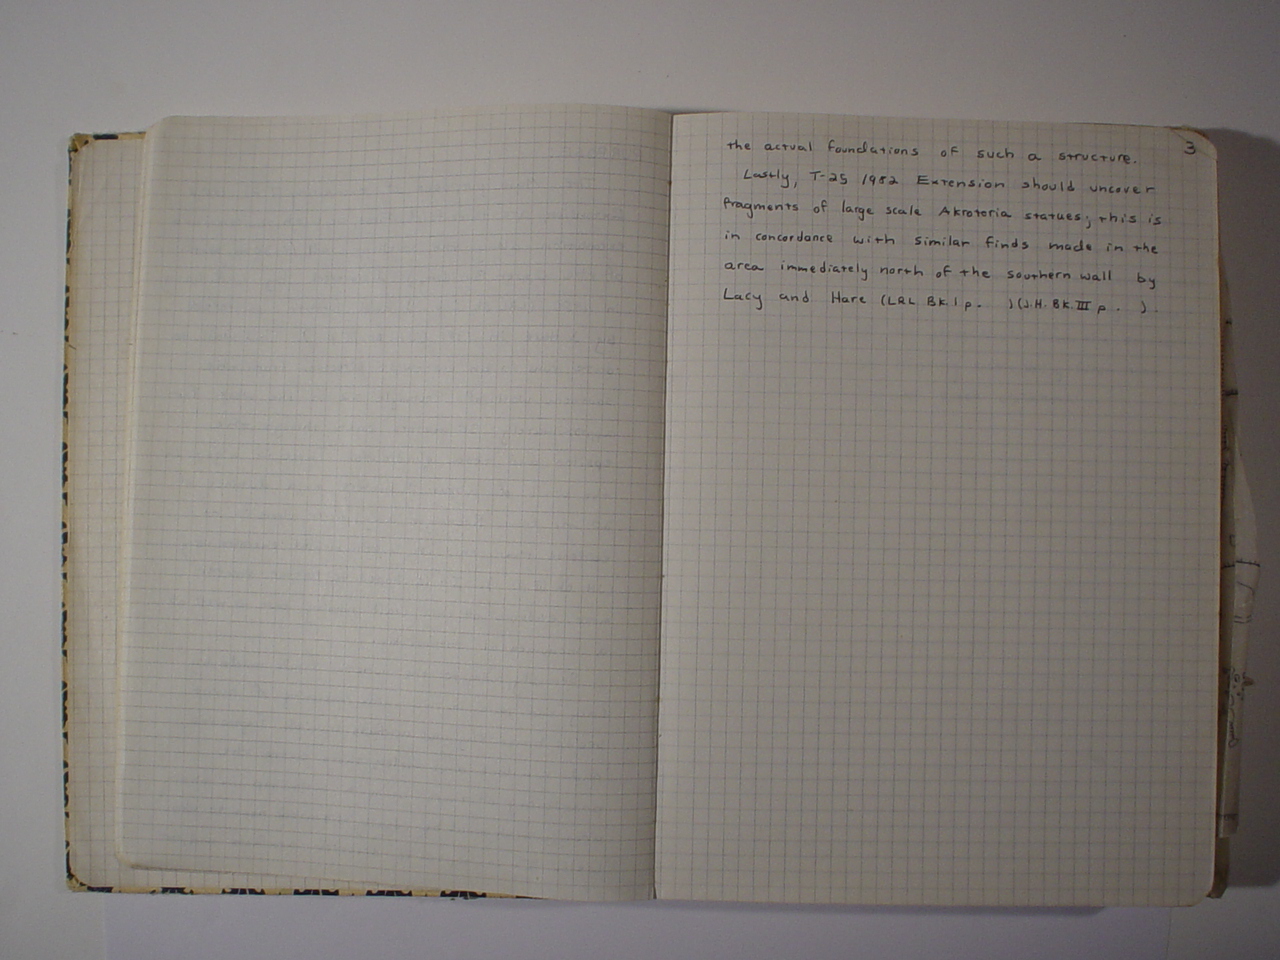 3
the actual foundations of such a structure.
Lastly, T-25 1982 Extension should uncover
fragments of large scale Akroteria statues; this is
in concordance with similar finds made in the
area immediately north of the southern wall by
Lacy and Hare (LRL Bk. I p. ) (J.H. Bk. III p. ).